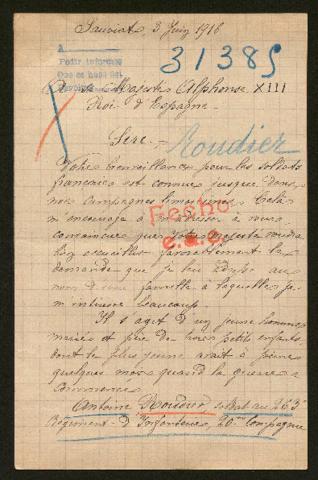 Sauviat, 3 Juin 1916
A
Pedir informes
31385
A sa Majesté Alphonse XIII
Roi d'Espagne.
Sire.
Roudier
Votre bienveillance pour les soldats
français est connue jusque dans
nos campagnes limousines. Cela
m'encourage à m'adresser à vous
convaincu que Votre Majesté voudra
bien accueillir favorablement la
demande que je lui adresse au
nom d'une famille à laquelle je
m'intéresse beaucoup.
Fecho
Il s'agit d'un jeune homme
marié et père de trois petits enfants
dont le plus jeune avait à peine
quelques mois quand la guerre a
commencé.
Antoine Roudier soldat au 263e
Régiment d'Infanterie, 20me Compagnie